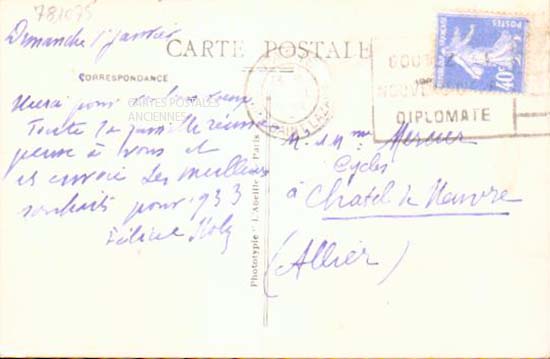 781075
Dimanche 1er Janvier
CARTE POSTALE
CORRESPONDANCE
CARTES POSTALES
ANCIENNES
Merci pour vos bons voeux
Toute la famille réunie
pense à vous et
envoie les meilleurs
souhaits pour 933
Félicie
Phototypie "L'Abeille", Paris
DIPLOMATE
POSTES
40c
M. et Mme Mercier
Cycles
à Chatel de Neuvre
(Allier)